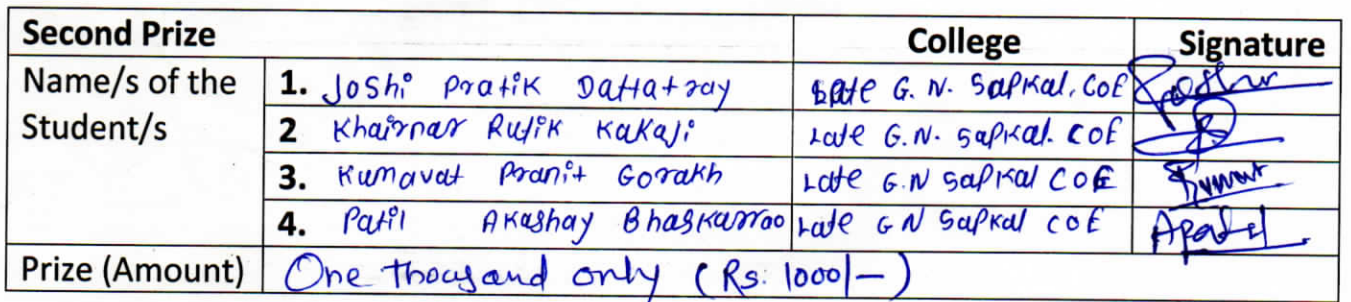 Second Prize College Signature
Name/s of the Student/s
1. Joshi Pratik Dattatray Late G. N. Sapkal. COE
2 Khairnar Rutik Kakaji Late G.N. Sapkal. COE
3. Kumavat Pranit Gorakh Late G.N Sapkal COE
4. Patil Akashay Bhaskarrao Late G N Sapkal COE
Prize (Amount) One thousand only (Rs. 1000/-)